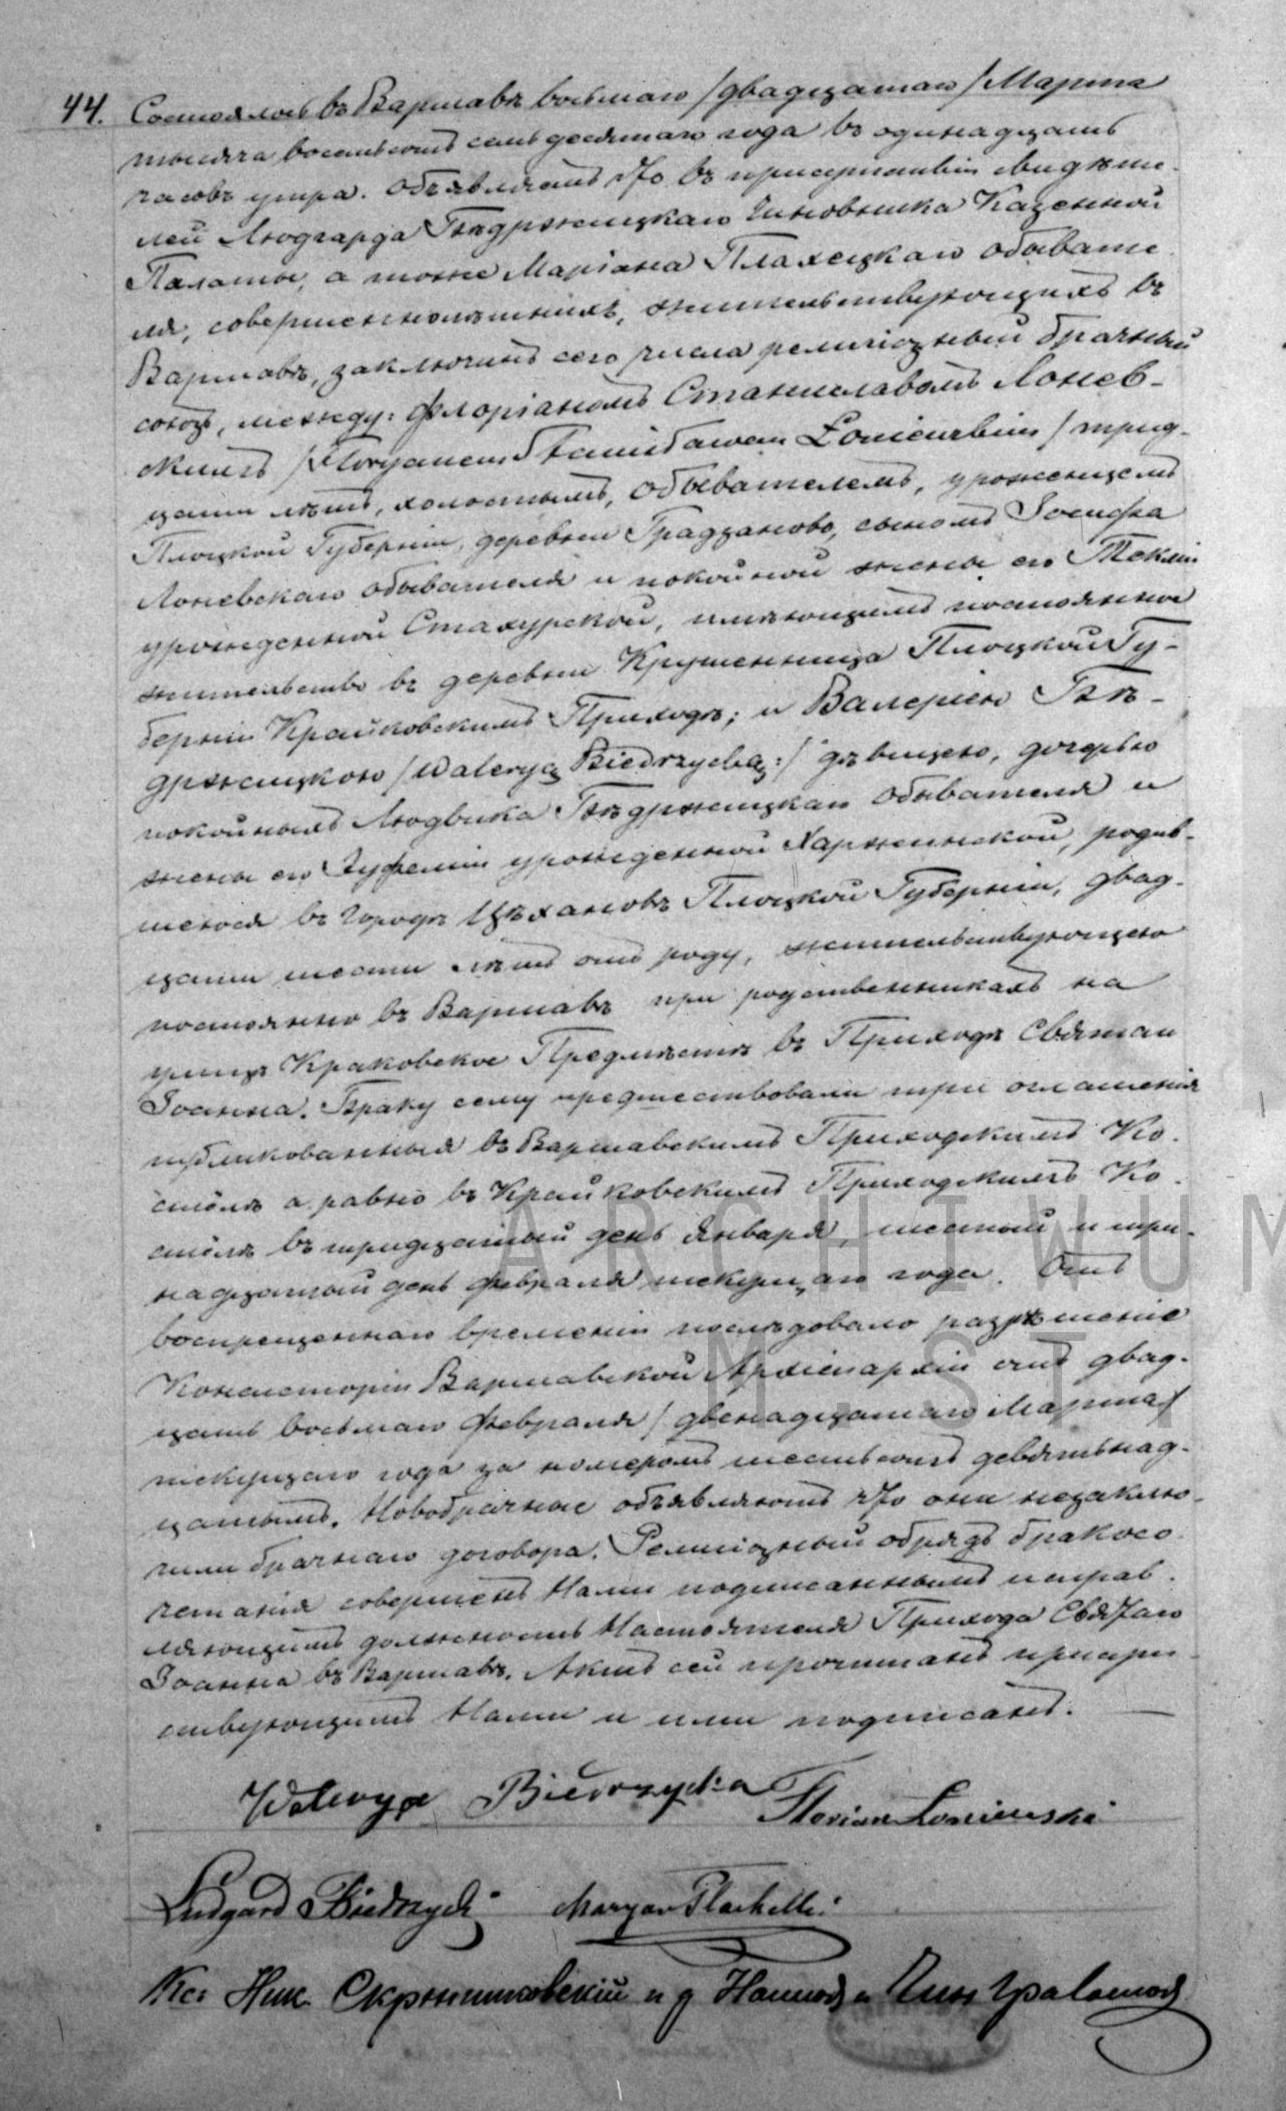 44. Состоялось въ Варшавѣ восьмаго /двадцатаго/ Марта
тысяча восемьсотъ семьдесятаго года въ одинадцать
часовъ утра. Объявляемъ что въ присутствіи свидѣте-
лей Людгарда Бѣдржицкаго Чиновника Казенной
Палаты, а тоже Маріана Плахецкаго обывате
ля, совершеннолѣтнихъ, жительствующихъ въ
Варшавѣ, заключенъ сего числа религіозный брачный
союзъ, между: Флоріаномъ Станиславомъ Лонев-
скимъ /Floryanem Stanisławem Łoniewskim/ трид-
цати лѣтъ, холостымъ, обывателемъ, уроженцемъ
Плоцкой Губерніи, деревни Градзаново, сыномъ Іосифа
Лоневскаго обывателя и покойной жены его Теклии
урожденной Стахурской, имѣющимъ постоянное
жительство въ деревни Крушенница Плоцкой Гу-
берніи Крайковскимъ Приходѣ; и Валеріею Бѣ-
држицкою /Waleryą Biedrzycką:/ дѣвицею, дочерью
покойныхъ Людвика Бѣдржицкаго обывателя и
жены его Эуфеміи урожденной Харжинской, родив-
шеюся въ городѣ Цѣхановѣ Плоцкой Губерніи, двад-
цати шести лѣтъ отъ роду, жительствующею
постоянно въ Варшавѣ при родственникахъ на
улицѣ Краковское Предмѣстѣ въ Приходѣ Святаго
Іоанна. Браку сему предшествовали три оглашенія
публикованныя въ Варшавскимъ Приходскимъ Ко-
стёлѣ а равно въ Крайковскимъ Приходскимъ Ко-
стёлѣ въ тридцатый день Января, шестый и три-
надцатый день февраля текущаго года. Отъ
воспрещеннаго времени послѣдовало разрѣшеніе
Консисторіи Варшавской Архіепархіи отъ двад-
цать восьмаго февраля /двенадцатаго Марта/
текущаго года за номеромъ шестьсотъ девятьнад-
цатымъ. Новобрачные объявляютъ что они незаклю-
чили брачнаго договора. Религіозный обрядъ бракосо
четанія совершенъ Нами подписаннымъ исправ-
ляющимъ должность Настоятеля Прихода Святаго
Іоанна въ Варшавѣ. Актъ сей прочитанъ присут-
ствующимъ Нами и ими подписанъ.
Walerya Biedrzycka
Floryan Łoniewski
Ludgard Biedrzycki
Maryan Plachecki
Кс: Ник. Скржипковскій и д Настоя и Чин Гра Состоя
ARCHIWUM
M. ST.